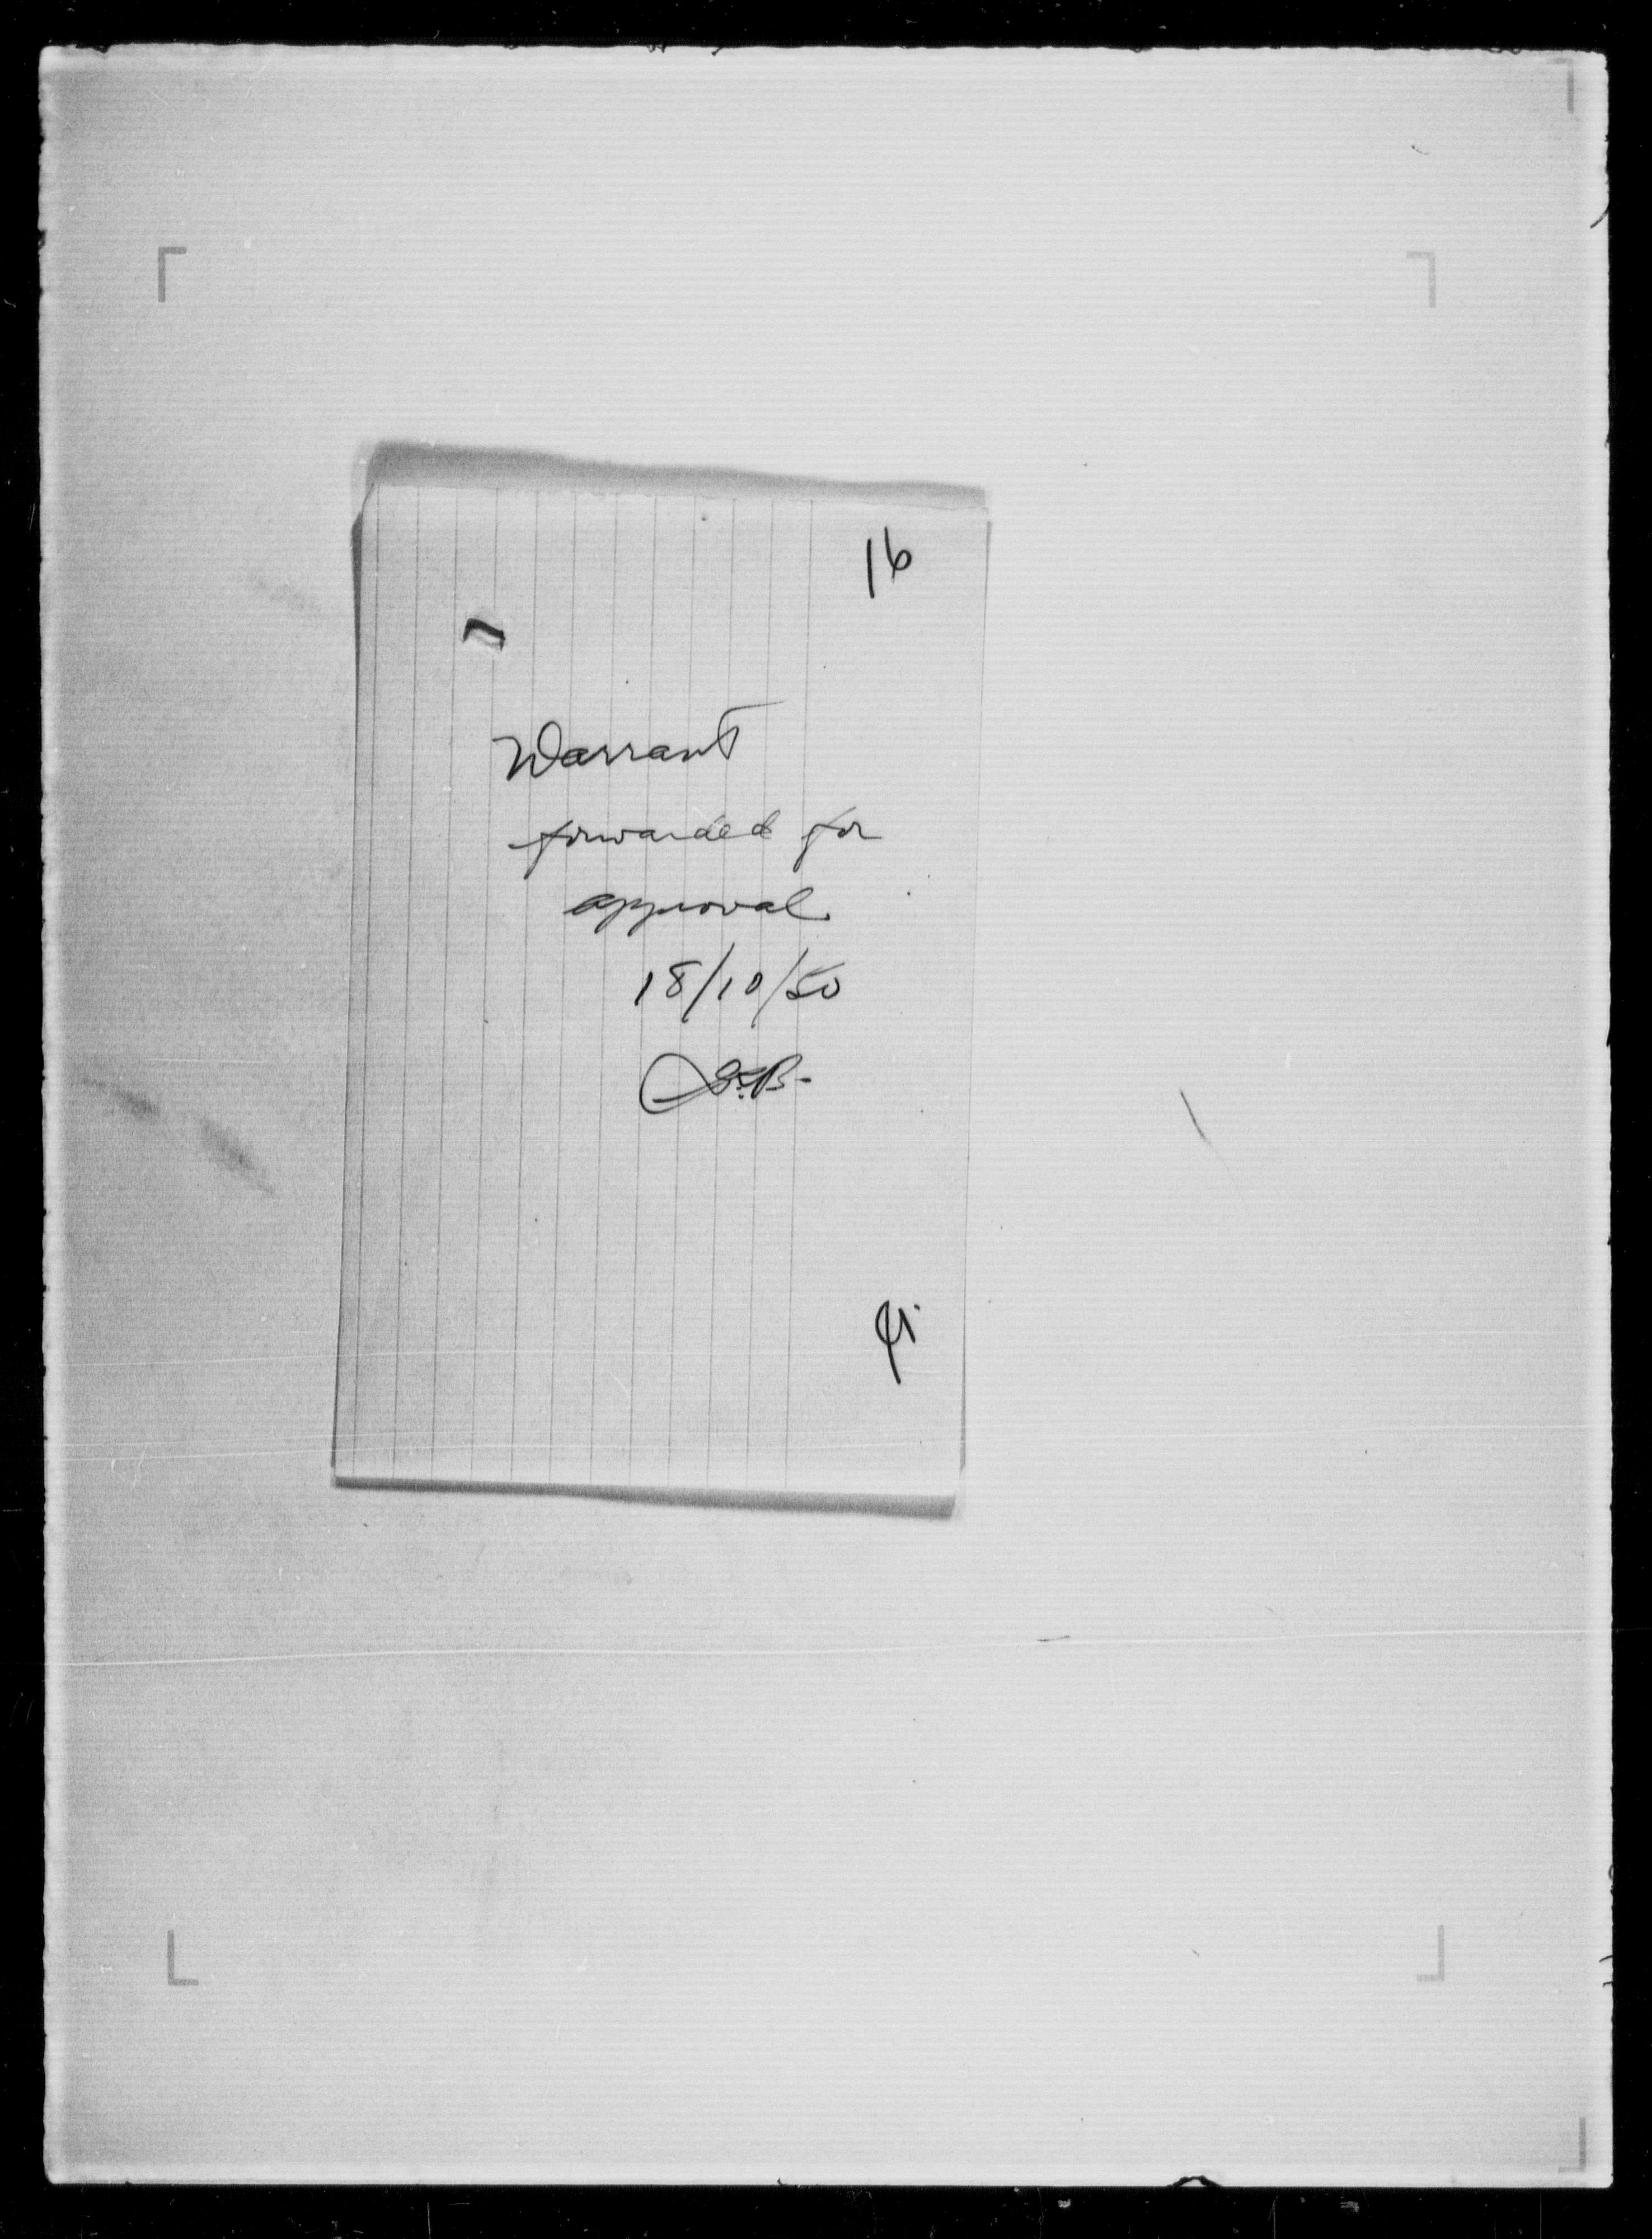 16
Warrant
forwarded for
approval
18/10/50